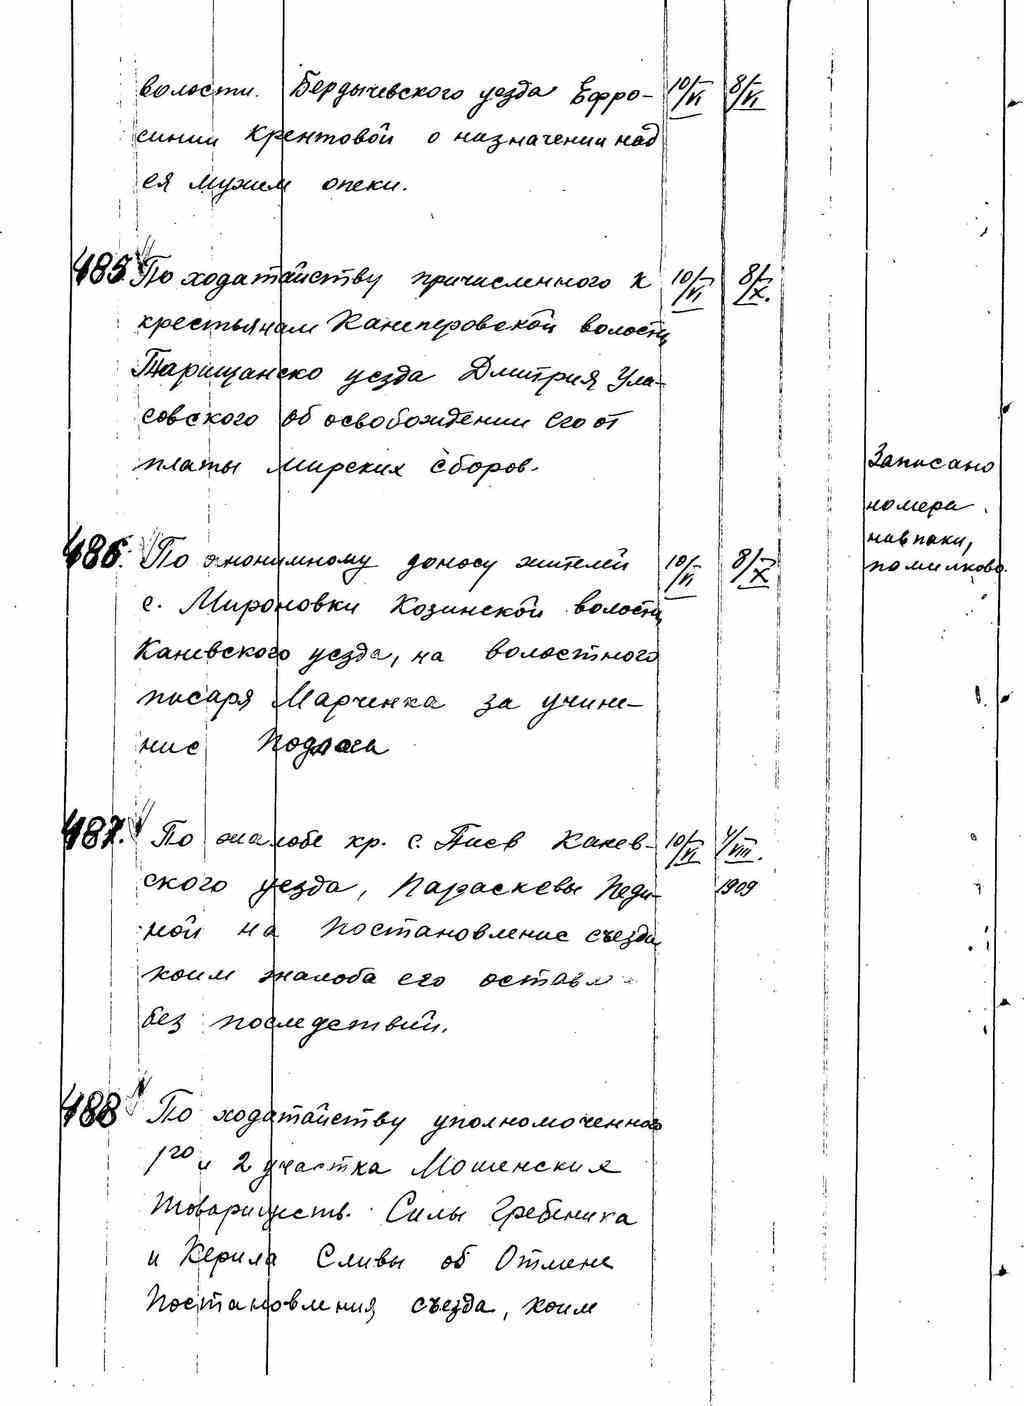 волости. Бердычевского уезда Ефро- 10/VI 8/VI
синии Крентовой о назначении над
ея мужем опеки.
485. По ходатайству причисленного к 10/VI 8/X.
крестьянам Канеперовской волости
Таращанско уезда Дмитрия Ула-
совского об освобождении его от
платы мирских сборов.
486. По анонимному доносу жителей 10/VI 8/X
с. Мироновки Козинской волости
Каневского уезда, на волостного
писаря Марченка за учине-
ние подлога
Записано
номера
навпаки,
помилково.
487. По жалобе кр. с. Пиев Канев- 10/VI 4/VIII.
ского уезда, Параскевы Педи- 1909
ной на постановление съезда
коим жалоба его оставл
без последствий.
488 По ходатайству уполномоченного
1го и 2 участка Мошенския
товариществ. Силы Гребеника
и Керила Сливы об Отмене
постановления съезда, коим